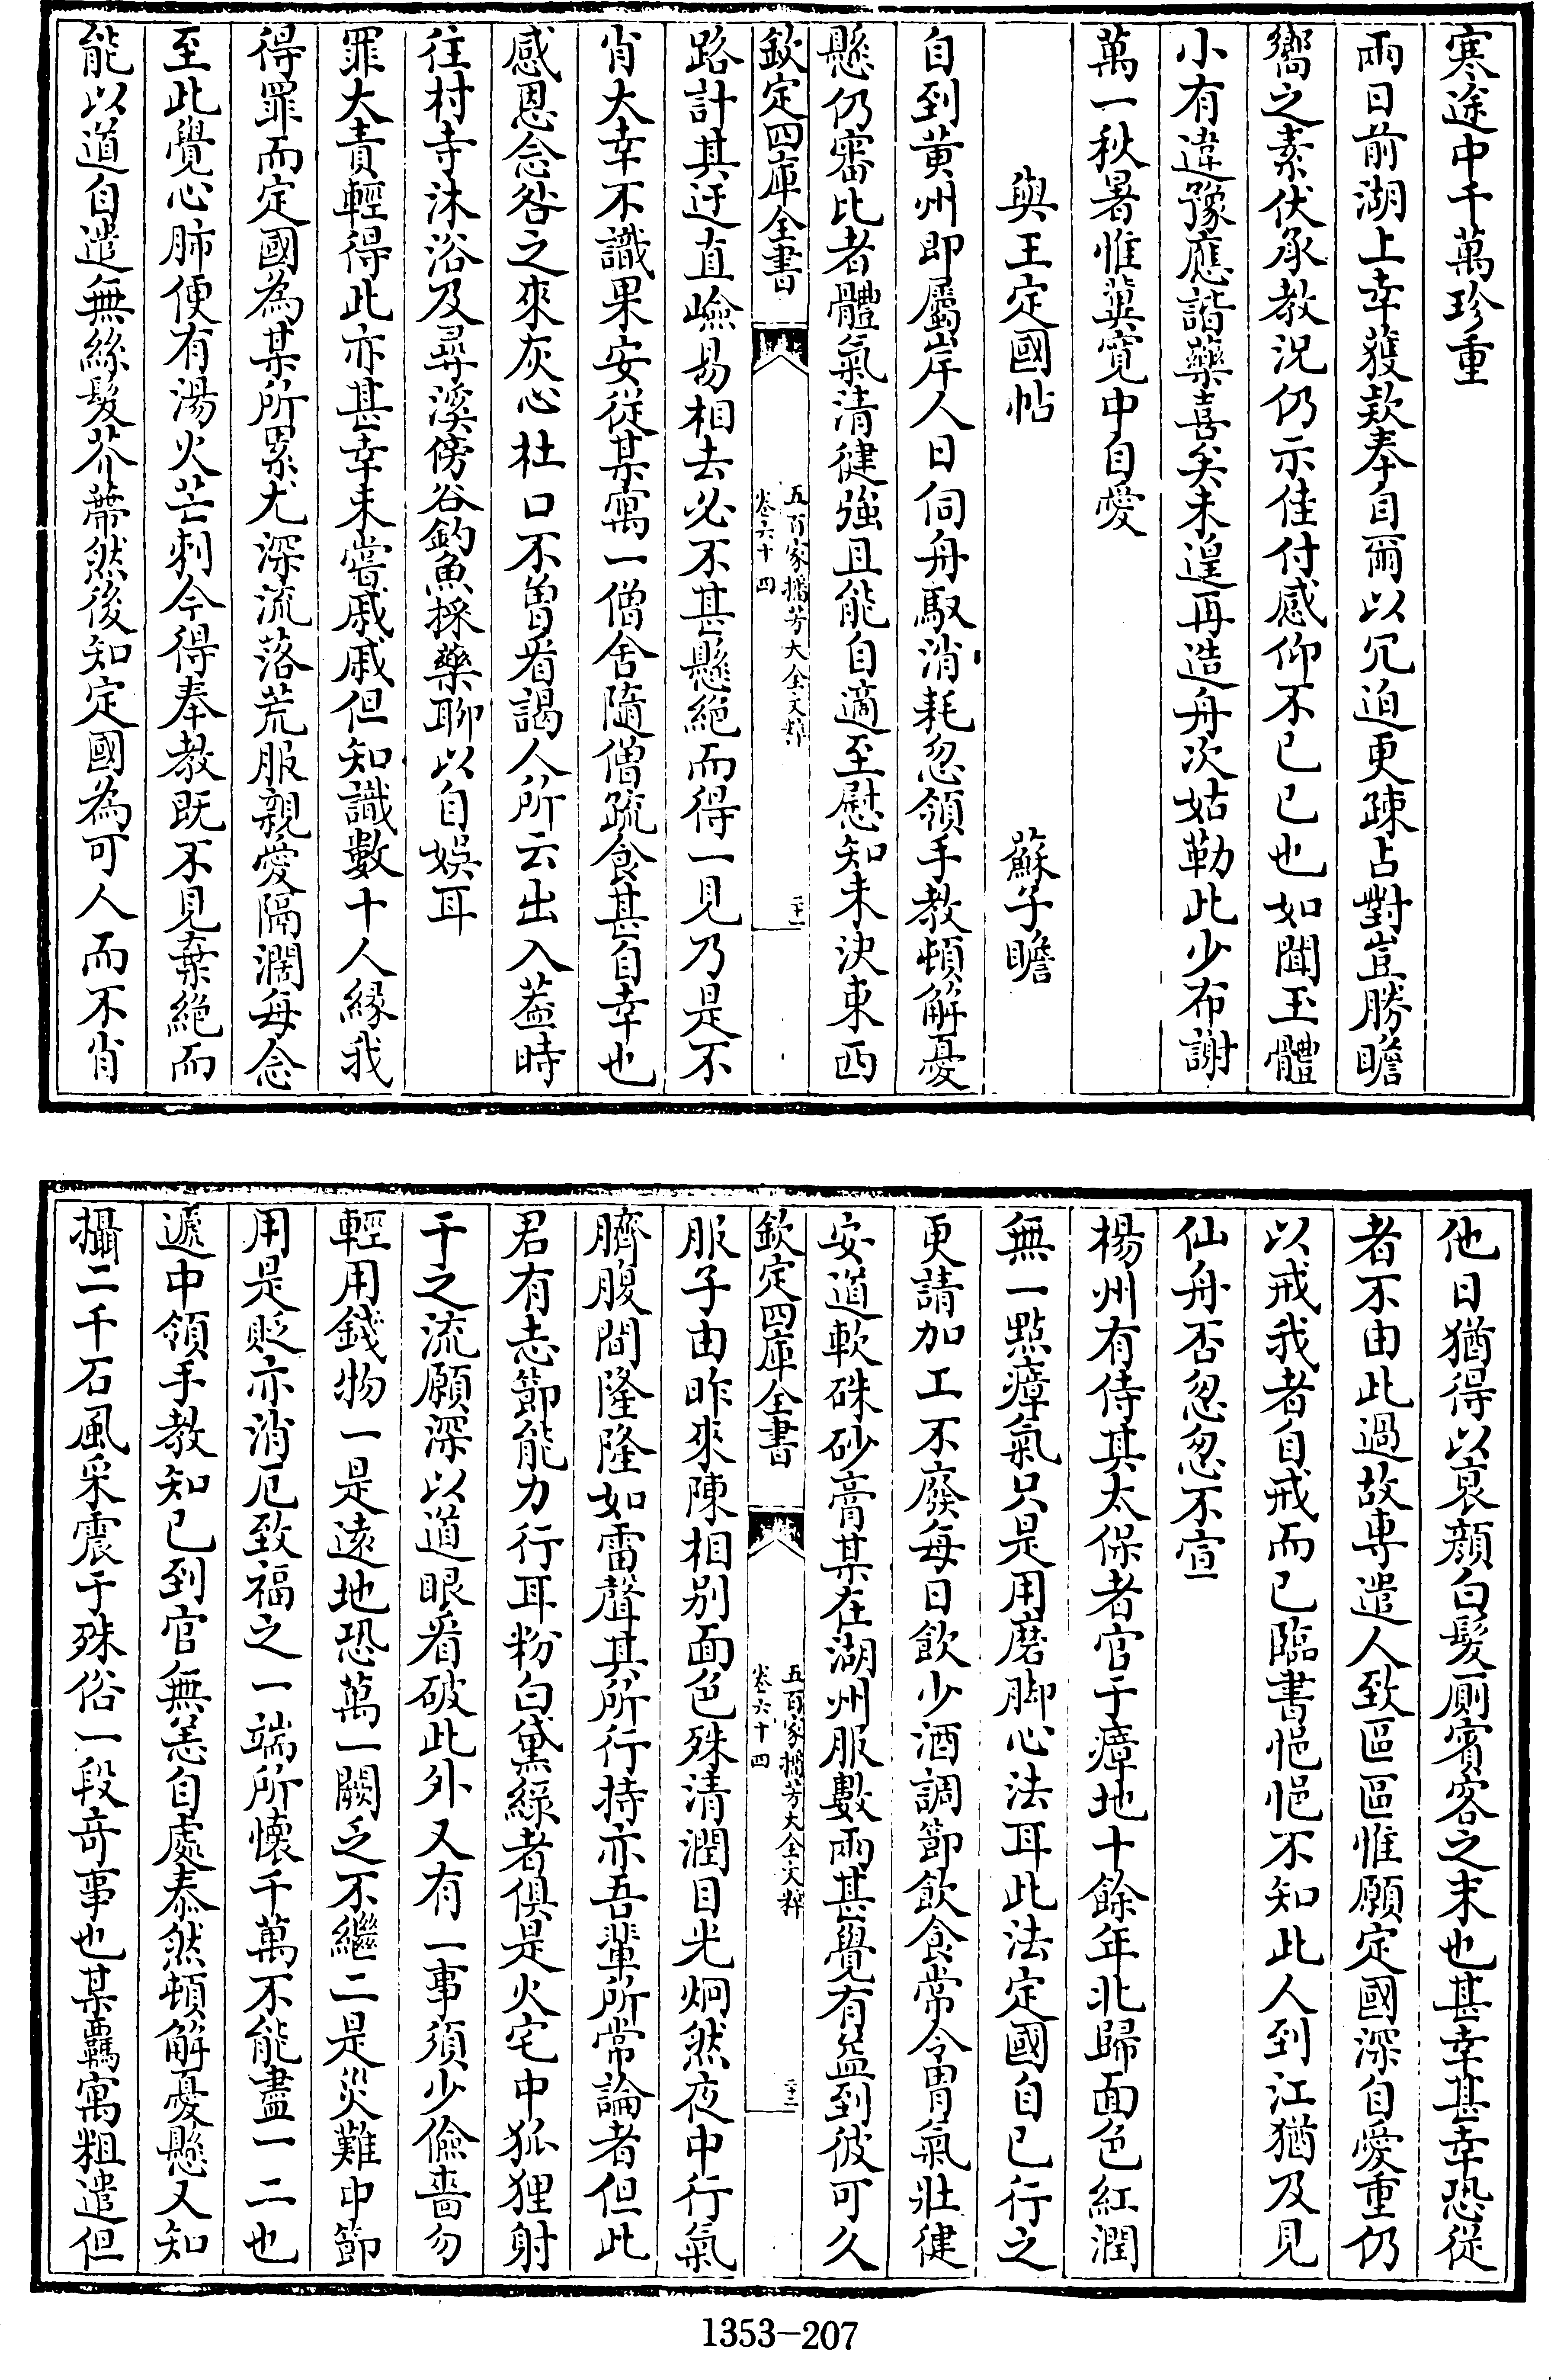 寒途中千萬珍重
兩日前湖上幸獲款奉自爾以冗迫更疎占對豈勝瞻
嚮之素伏承教況仍示佳付感仰不已已也如聞玉體
小有違豫應諧藥喜矣未遑再造舟次姑勒此少布謝
萬一秋暑惟冀寬中自愛
與王定國帖
蘇子瞻
自到黄州即屬岸人日伺舟馭消耗忽領手教頓解憂
懸仍審比者體氣清健強且能自適至慰知未決東西
欽定四庫全書
五百家播芳大全文粹
卷六十四
二十一
路計其迂直嶮易相去必不甚懸絕而得一見乃是不
肖大幸不識果安從某寓一僧舍隨僧疏食甚自幸也
感恩念咎之來灰心杜口不曽看謁人所云出入葢時
往村寺沐浴及尋溪傍谷釣魚採藥聊以自娛耳
罪大責輕得此亦甚幸未嘗戚戚但知識數十人緣我
得罪而定國為某所累尤深流落荒服親愛隔濶每念
至此覺心肺便有湯火芒刺今得奉教既不見棄絕而
能以道自遣無絲髮芥蔕然後知定國為可人而不肖
他日猶得以衰顔白髮厠賓客之末也甚幸甚幸恐從
者不由此過故專遣人致區區惟願定國深自愛重仍
以戒我者自戒而已臨書悒悒不知此人到江猶及見
仙舟否忽忽不宣
楊州有侍其太保者官于瘴地十餘年北歸面色紅潤
無一點瘴氣只是用磨脚心法耳此法定國自已行之
更請加工不廢每日飲少酒調節飲食常令胃氣壯健
安道軟硃砂膏某在湖州服數兩甚覺有益到彼可久
欽定四庫全書
五百家播芳大全文粹
卷六十四
二十二
服子由昨來陳相别面色殊清潤目光炯然夜中行氣
臍腹間隆隆如雷聲其所行持亦吾輩所常論者但此
君有志節能力行耳粉白黛綠者俱是火宅中狐狸射
干之流願深以道眼看破此外又有一事須少儉嗇勿
輕用錢物一是遠地恐萬一闕乏不繼二是災難中節
用是貶亦消厄致福之一端所懷千萬不能盡一二也
遞中領手教知已到官無恙自處泰然頓解憂懸又知
攝二千石風采震于殊俗一段奇事也某羈寓粗遣但
1353-207